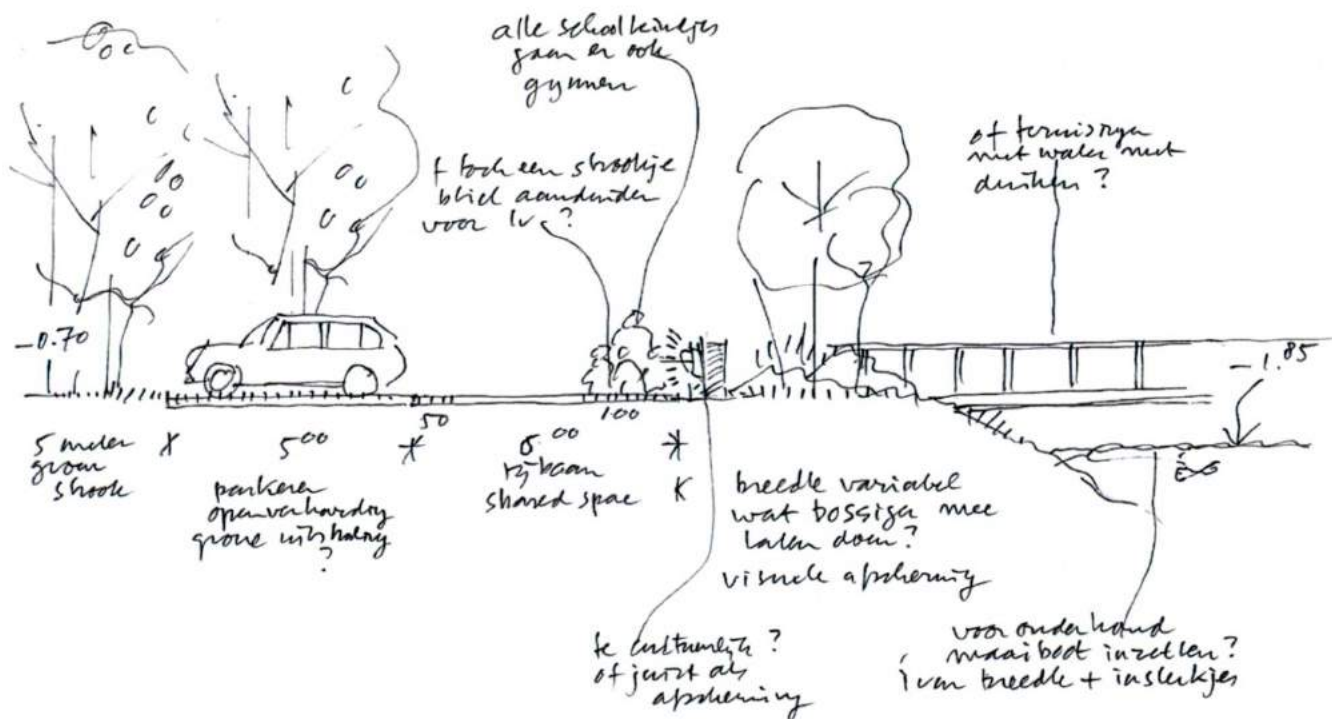 alle schoolkindjes
gaan er ook
gymmen
of
met water met
duiken?
+ toch een strookje
blied aanduiden
voor lv?
-0.70
-1.85
50
100
5 meter
groen
strook
5⁰⁰
parkeren
open verharding
groene uitstraling
?
6.⁰⁰
rijbaan
shared space
breedte variabel
wat bossiger mee
laten doen?
visuele afscherming
te cultuurlijk?
of juist als
afscherming
voor onderhoud
maaiboot inzetten?
ivm breedte + insteekjes